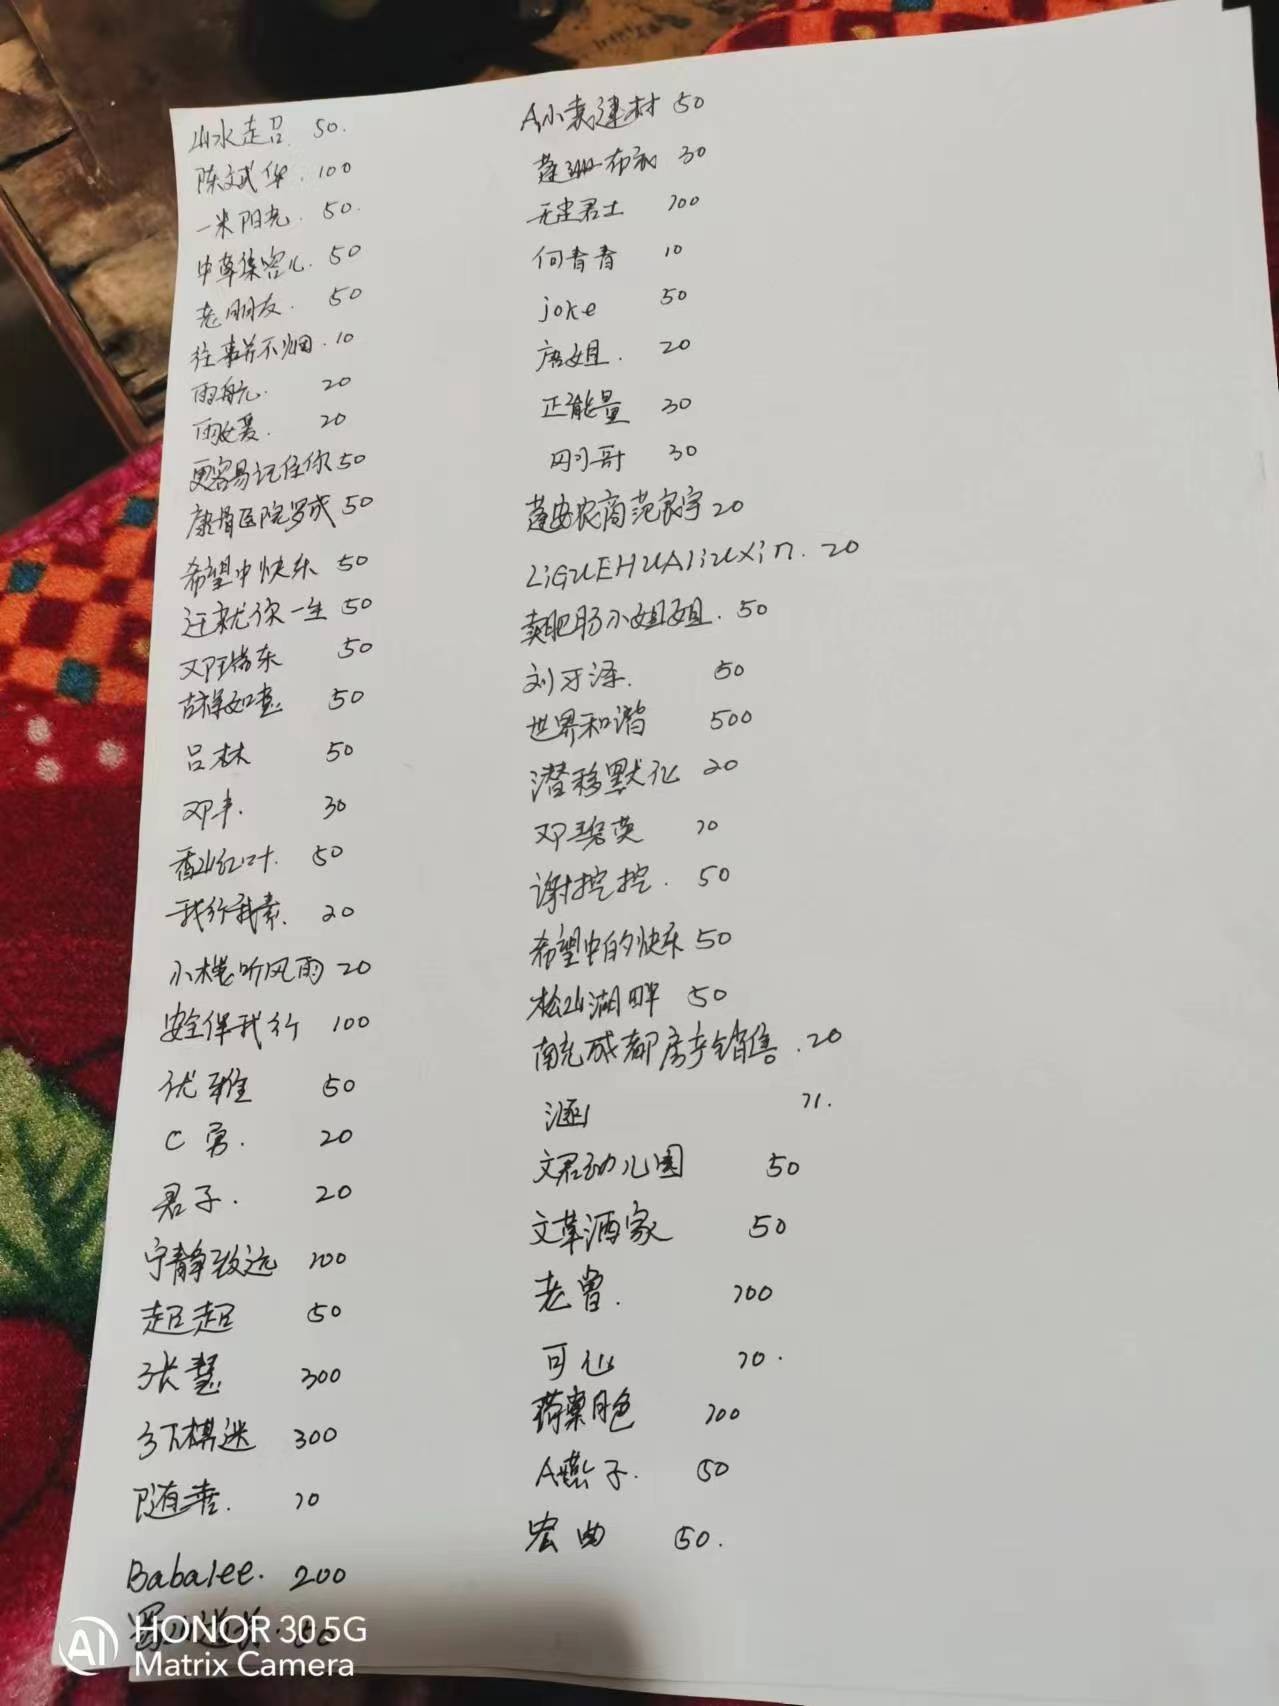 山水走召 50.
陈斌华. 100
一米阳光. 50.
中草集客儿. 50
老朋友. 50
往事并不烟. 10
雨航. 20
雨媛. 20
更容易记住你 50
康骨医院罗成 50
希望中快乐 50
迁就你一生 50
邓瑞东 50
吉祥如意 50
吕林 50
邓丰. 30
香山红叶. 50
我行我素. 20
小楼听风雨 20
安全伴我行 100
优雅 50
C 勇. 20
君子. 20
宁静致远 100
超超 50
张慧 300
乡下棋迷 300
随喜. 10
Babalee. 200
A小袁建材 50
蓬珊布衣 30
无尘君士 100
何青青 10
joke 50
唐姐. 20
正能量 30
刚哥 30
蓬安农商范家宇 20
LiGUEHUAliuxin. 20
卖肥肠小姐姐. 50
刘牙泽. 50
世界和谐 500
潜移默化 20
邓碧英 10
谢控控. 50
希望中的快乐 50
松山湖畔 50
南充成都房产销售. 20
涵 11.
文君幼儿园 50
文革酒家 50
老曾. 100
可心 10.
荷塘月色 100
A燕子. 50
宏曲 50.
HONOR 30 5G
Matrix Camera
AI